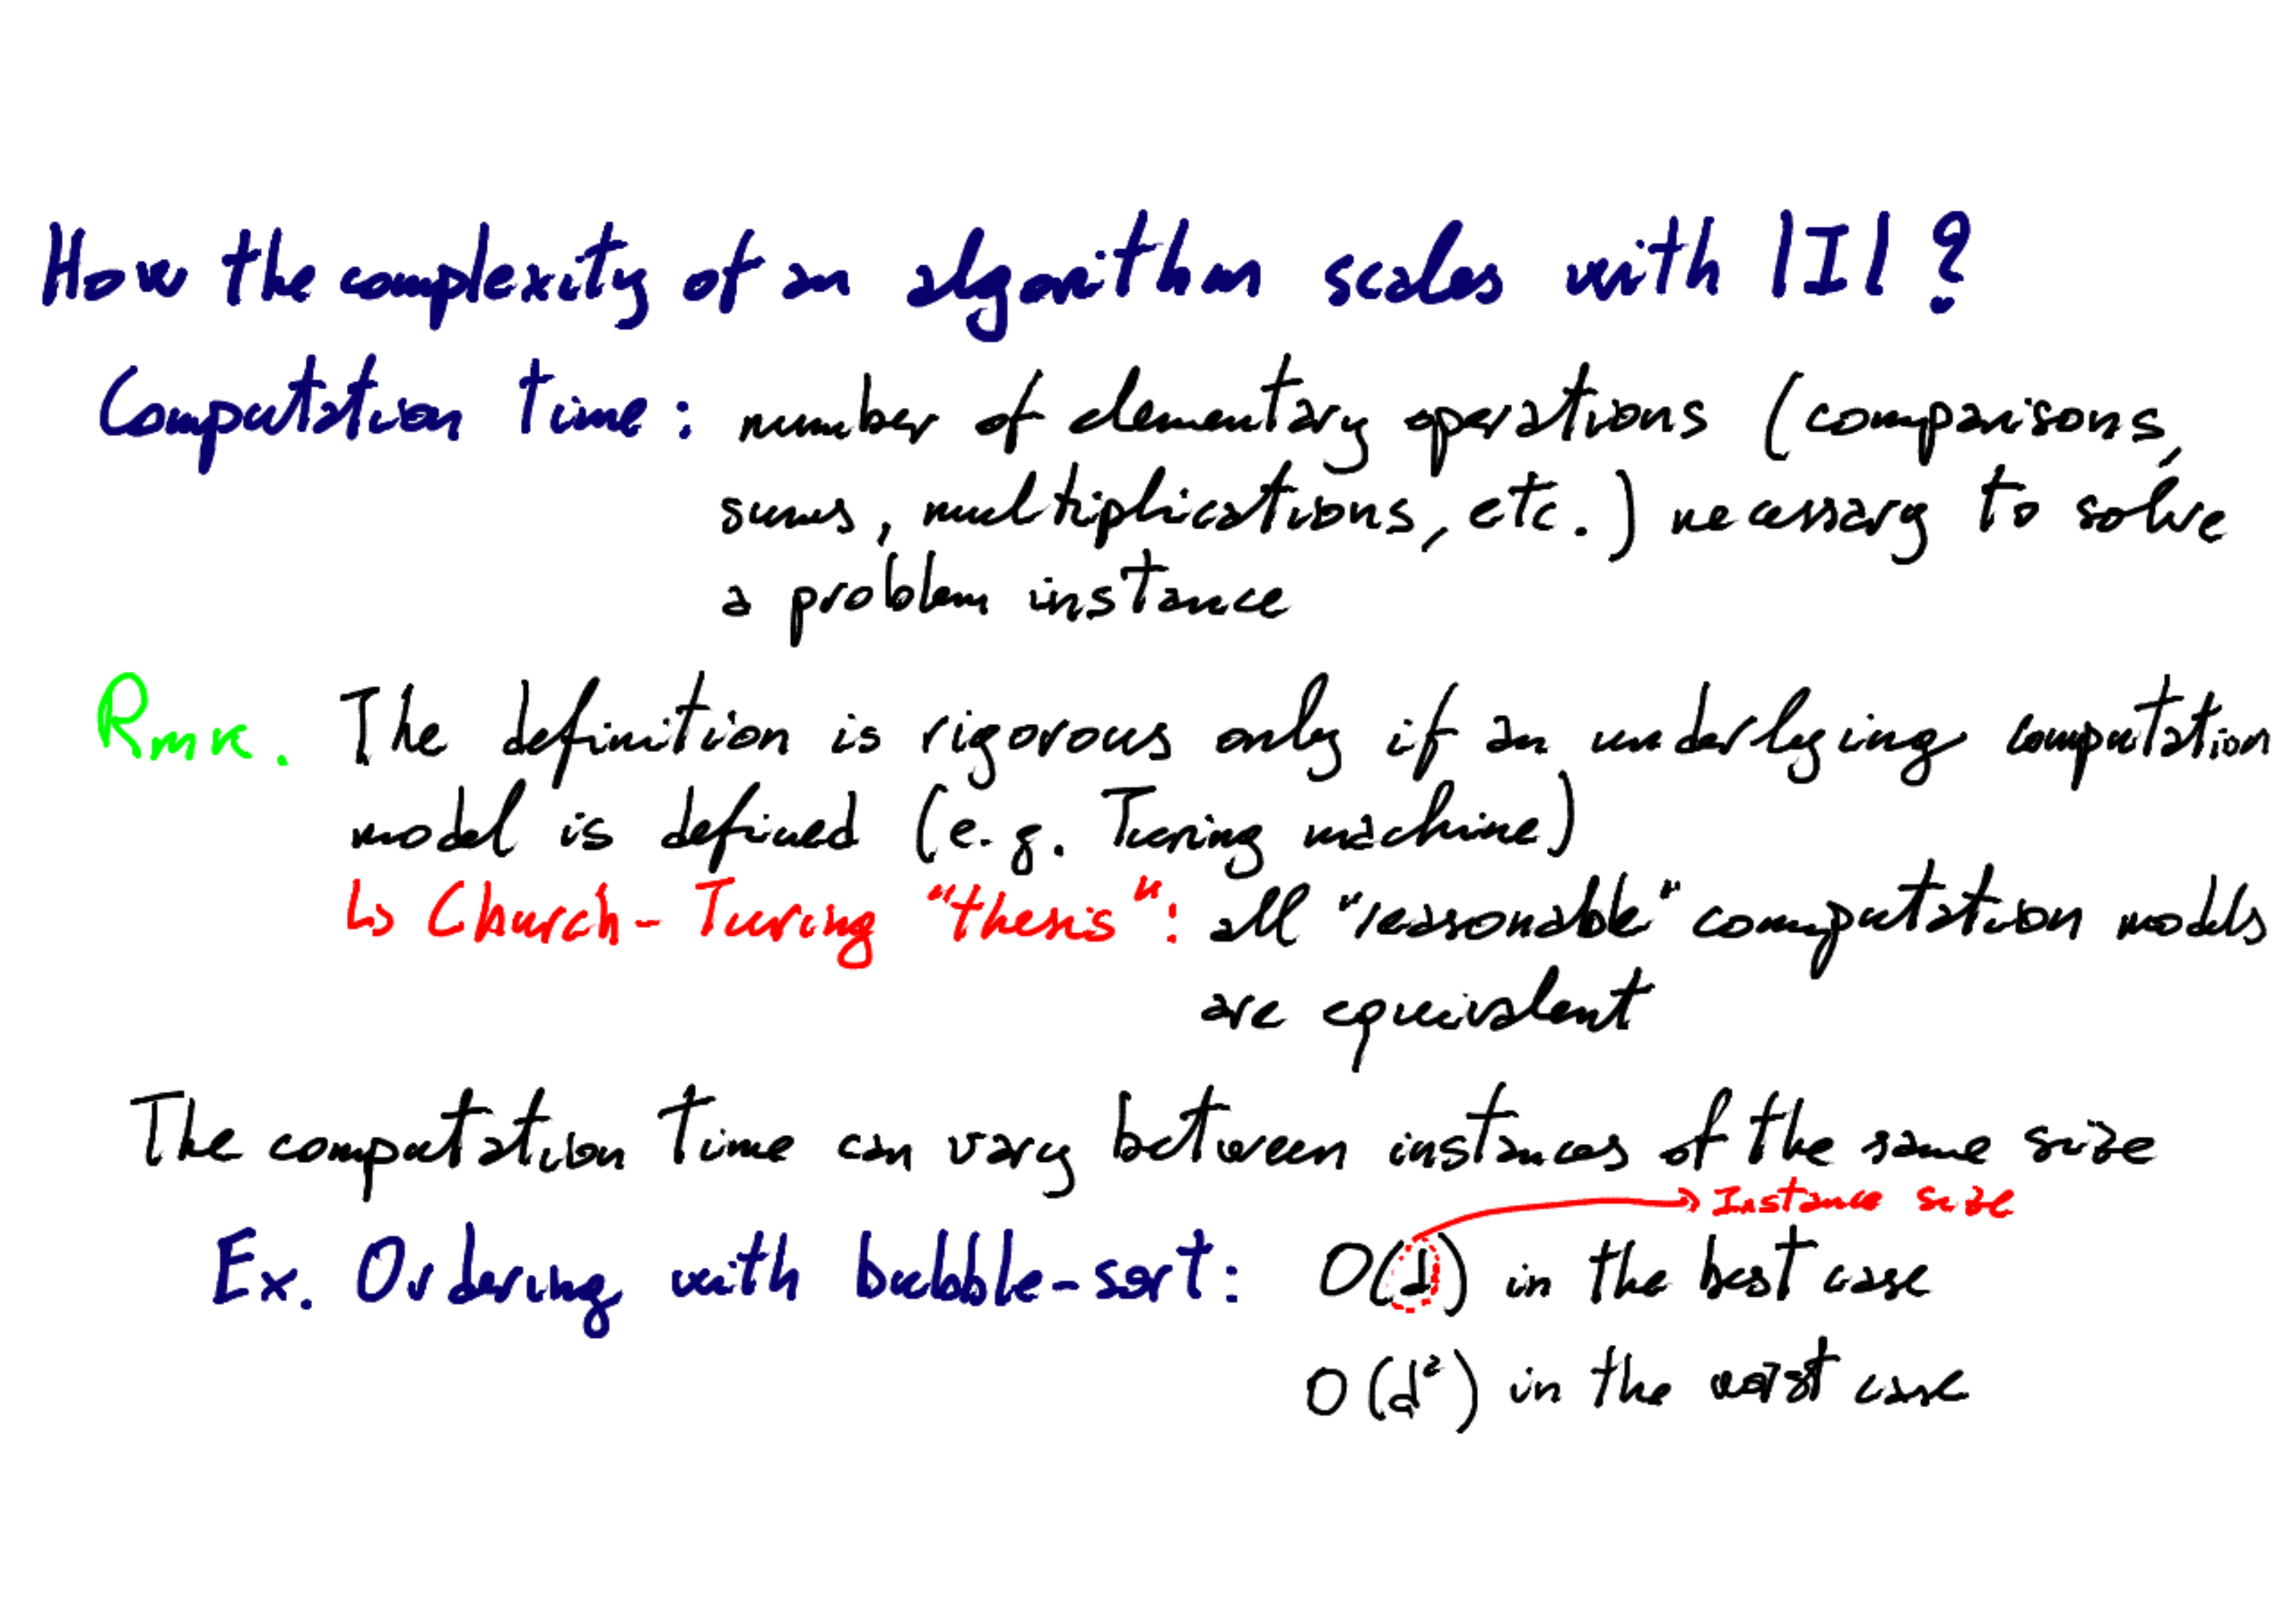 How the complexity of an algorithm scales with |I|?
Computation time: number of elementary operations (comparisons,
sums, multiplications, etc.) necessary to solve
a problem instance
Rmk. The definition is rigorous only if an underlying computation
model is defined (e.g. Turing machine)
↳ Church-Turing "thesis": all "reasonable" computation models
are equivalent
The computation time can vary between instances of the same size
→ Instance size
Ex. Ordering with bubble-sort: O(d) in the best case
O(d²) in the worst case